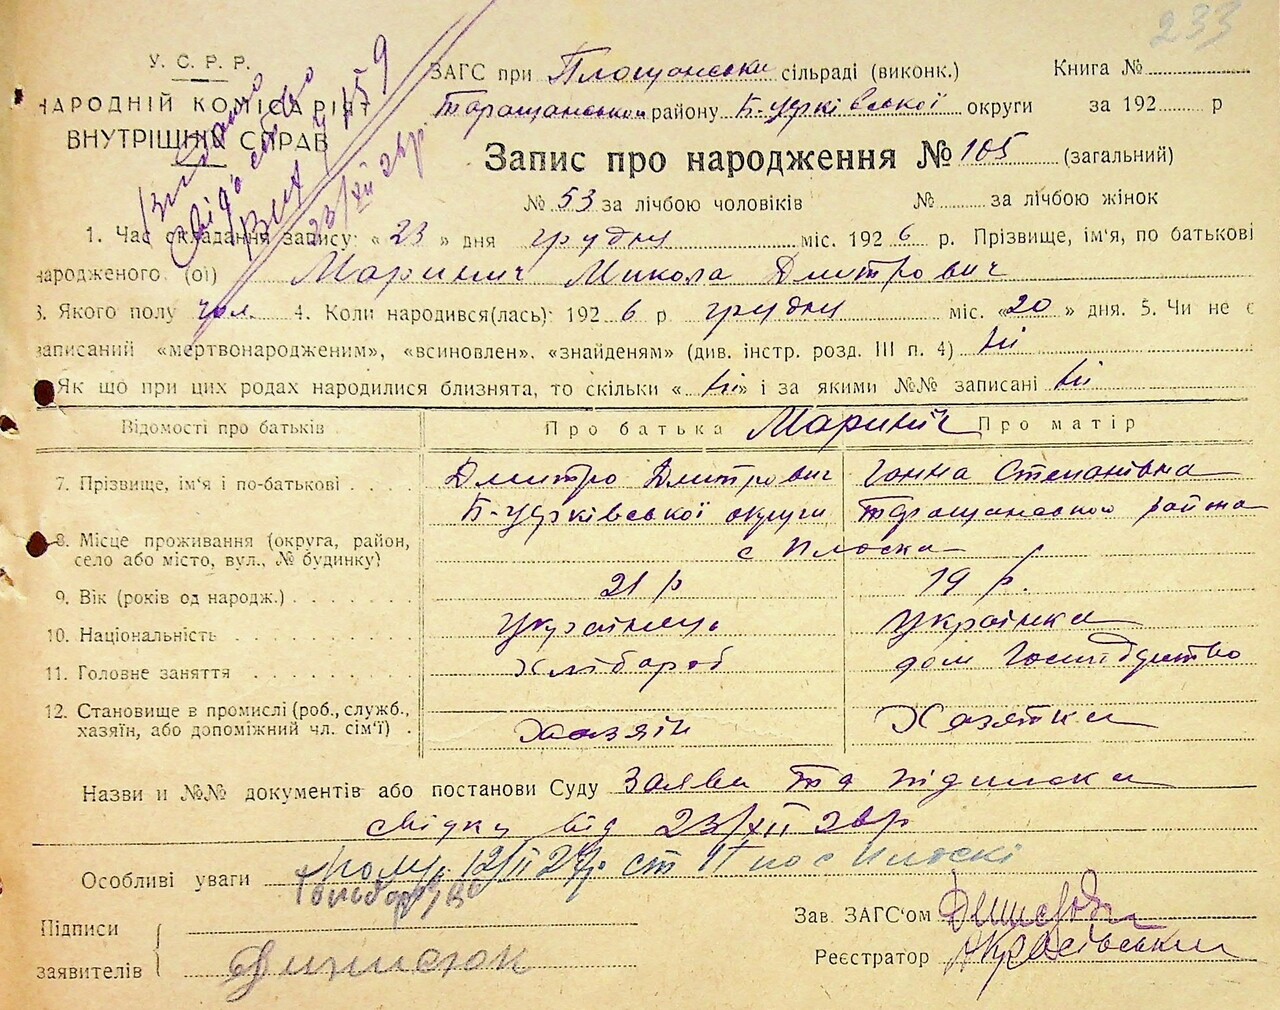 233
У. С. Р. Р.
НАРОДНІЙ КОМІСАРІЯТ
ВНУТРІШНІХ СПРАВ
Видано
свід
23/XII 26р
ЗАГС при Площанськи сільраді (виконк.) Книга №
Таращанськом району Б-Церківської округи за 192 р
Запис про народження № 105 (загальний)
№ 53 за лічбою чоловіків № за лічбою жінок
1. Час складання запису: « 23 » дня грудня міс. 192 6 р. Прізвище, ім'я, по батькові
народженого (ої) Маринич Микола Дмитрович
3. Якого полу чол. 4. Коли народився(лась): 192 6 р грудня міс. «20» дня. 5. Чи не є
записаний «мертвонародженим», «всиновлен», «знайденям» (див. інстр. розд. III п. 4) ні
Як що при цих родах народилися близнята, то скільки « ні» і за якими №№ записані ні
Відомості про батьків Про батька Маринич Про матір
7. Прізвище, ім'я і по-батькові Дмитро Дмитрович Ганна Степанівна
Б-Церківської округи Таращанськом района
8. Місце проживання (округа, район, с Плоска
село або місто, вул., № будинку)
9. Вік (років од народж.) 21 р 19 р.
10. Національність Українець Українка
11. Головне заняття Хлібороб дом Господуство
12. Становище в промислі (роб., служб., Хазяїн Хазятка
хазяїн, або допоміжний чл. сім'ї)
Назви и №№ документів або постанови Суду Заява та
свідку від 23/XII 26р
Особливі уваги 12/II 27р ст по с Плоскі
Підписи Зав. ЗАГС'ом
заявителів Реєстратор